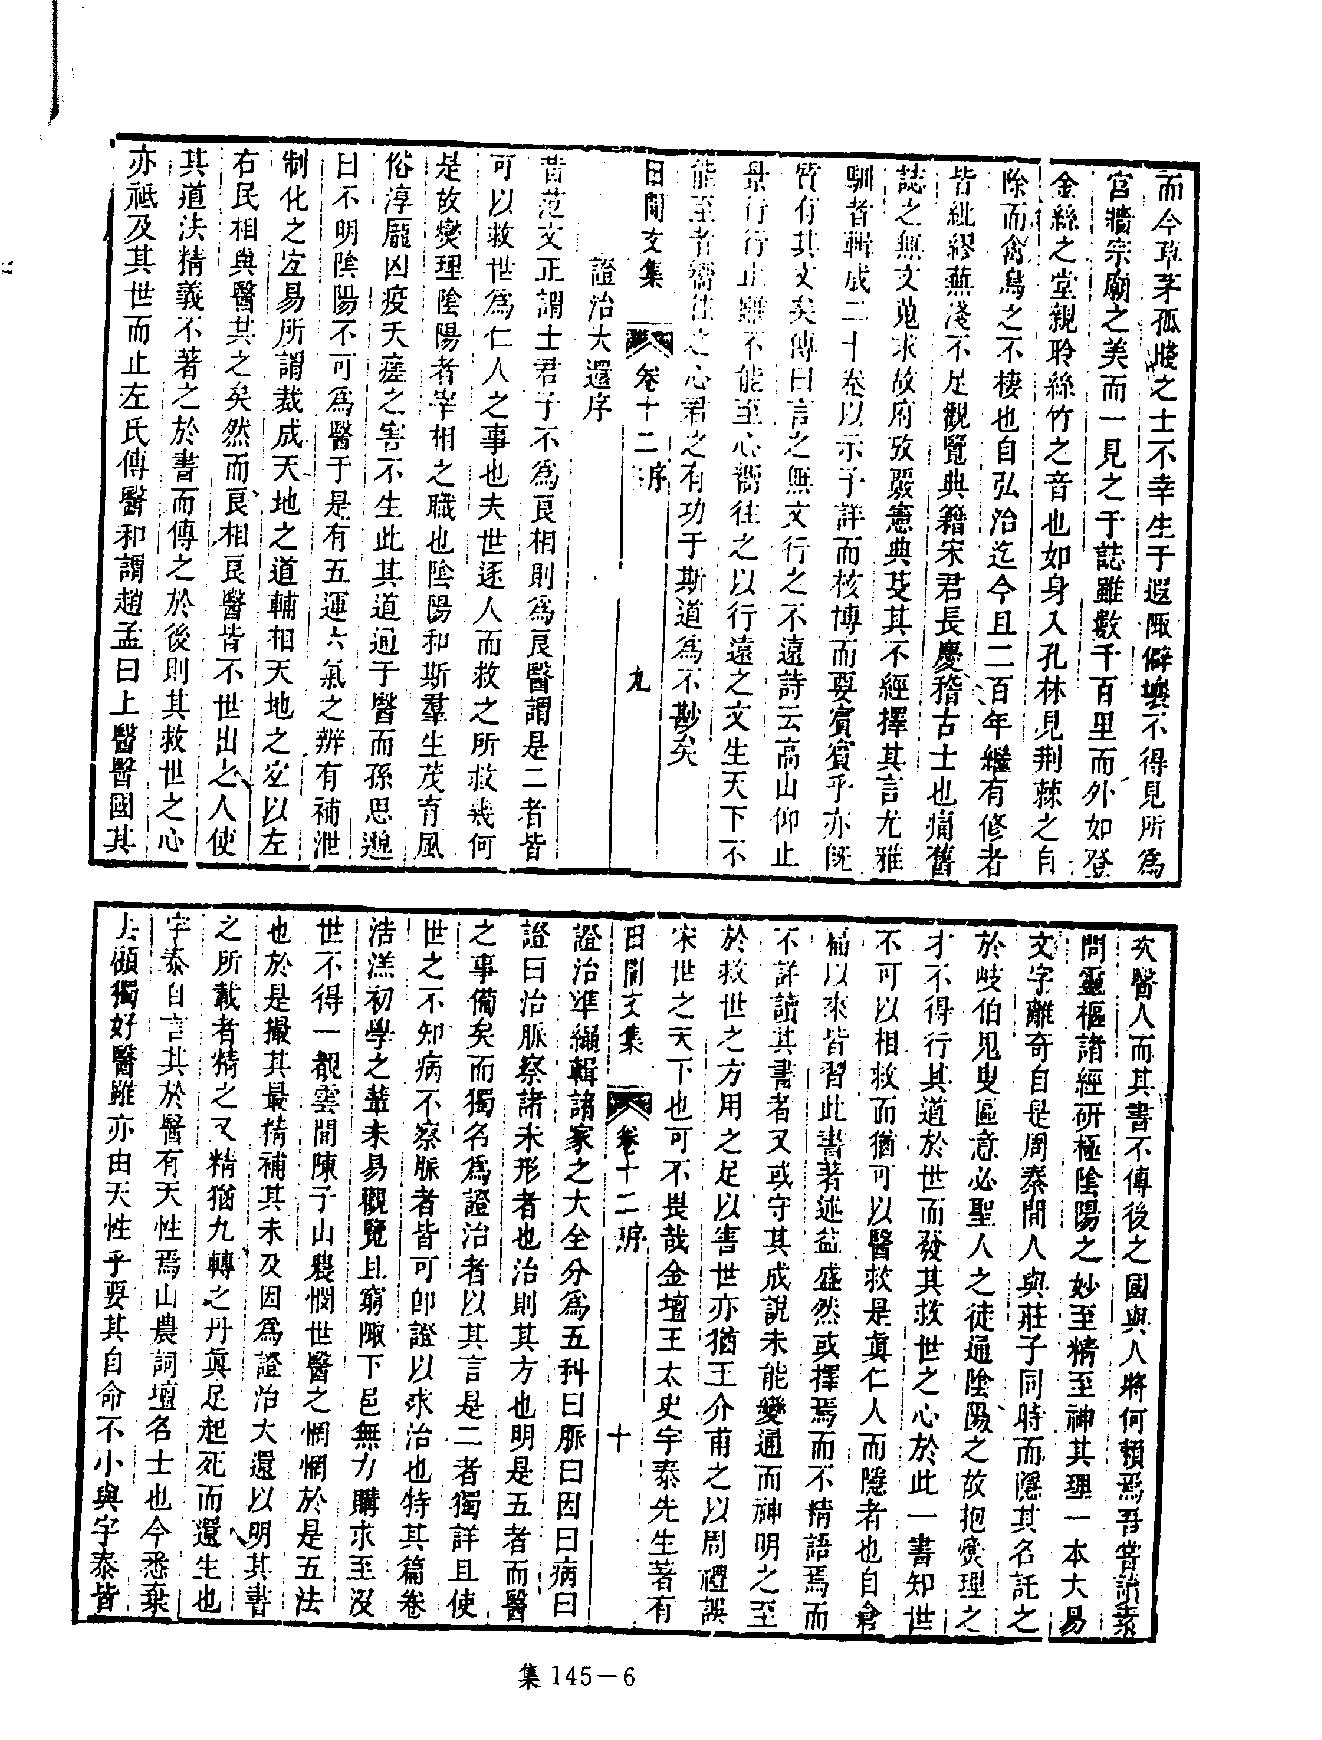 而今草茅孤賤之士不幸生于遐陬僻壤不得見所爲
宮牆宗廟之美而一見之于誌雖數千百里而外如登
金絲之堂親聆絲竹之音也如身入孔林見荆棘之自
除而禽鳥之不棲也自弘治迄今且二百年繼有修者
皆紕繆蕪淺不足觀覽典籍宋君長慶稽古士也痛舊
誌之無文蒐求故府攷嚴憲典芟其不經擇其言尤雅
馴者輯成二十卷以示予詳而核博而要賓賓乎亦旣
質有其文矣傳曰言之無文行之不遠詩云高山仰止
景行行止雖不能至心嚮往之以行遠之文生天下不
能至者嚮往之心君之有功于斯道爲不尠矣
田間文集 卷十二 序 九
證治大還序
昔范文正謂士君子不爲良相則爲良醫謂是二者皆
可以救世爲仁人之事也夫世逐人而救之所救幾何
是故爕理陰陽者宰相之職也陰陽和斯羣生茂育風
俗淳厖凶疫夭瘥之害不生此其道通于醫而孫思邈
曰不明陰陽不可爲醫于是有五運六氣之辨有補泄
制化之宜易所謂裁成天地之道輔相天地之宜以左
右民相與醫其之矣然而良相良醫皆不世出之人使
其道法精義不著之於書而傳之於後則其救世之心
亦祗及其世而止左氏傳醫和謂趙孟曰上醫醫國其
次醫人而其書不傳後之國與人將何賴焉吾嘗讀素
問靈樞諸經研極陰陽之妙至精至神其理一本大易
文字離奇自是周秦間人與莊子同時而隱其名託之
於岐伯鬼臾區意必聖人之徒通陰陽之故抱爕理之
才不得行其道於世而發其救世之心於此一書知世
不可以相救而猶可以醫救是眞仁人而隱者也自倉
扁以來皆習此書著述益盛然或擇焉而不精語焉而
不詳讀其書者又或守其成說未能變通而神明之至
於救世之方用之足以害世亦猶王介甫之以周禮誤
宋世之天下也可不畏哉金壇王太史宇泰先生著有
田間文集 卷十二 序 十
證治準繩輯諸家之大全分爲五科曰脈曰因曰病曰
證曰治脈察諸未形者也治則其方也明是五者而醫
之事備矣而獨名爲證治者以其言是二者獨詳且使
世之不知病不察脈者皆可卽證以求治也特其篇卷
浩漾初學之輩未易觀覽且窮陬下邑無力購求至沒
世不得一覩雲間陳子山農憫世醫之惘惘於是五法
也於是撮其最精補其未及因爲證治大還以明其書
之所載者精之又精猶九轉之丹眞足起死而還生也
宇泰自言其於醫有天性焉山農詞壇名士也今悉棄
去顧獨好醫雖亦由天性乎要其自命不小與宇泰皆
集 145－6